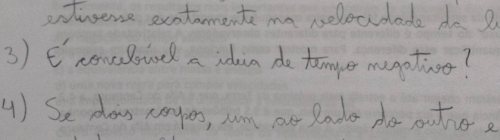 estivesse exatamente na velocidade da
3) É concebível a ideia de tempo negativo?
4) Se dois corpos, um ao lado do outro e